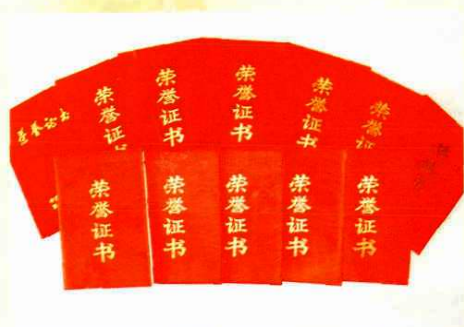 荣誉证书
荣誉证书
荣誉证书
荣誉证书
荣誉证书
荣誉证书
荣誉证书
荣誉证书
荣誉证书
荣誉证书
荣誉证书